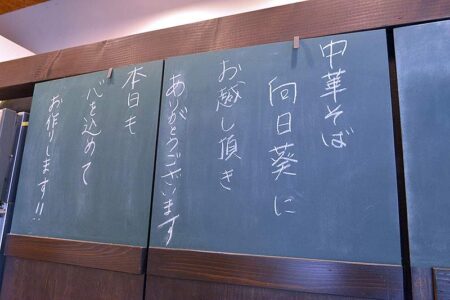 中華そば
向日葵に
お越し頂き
ありがとうございます
本日も
心を込めて
お作りします!!